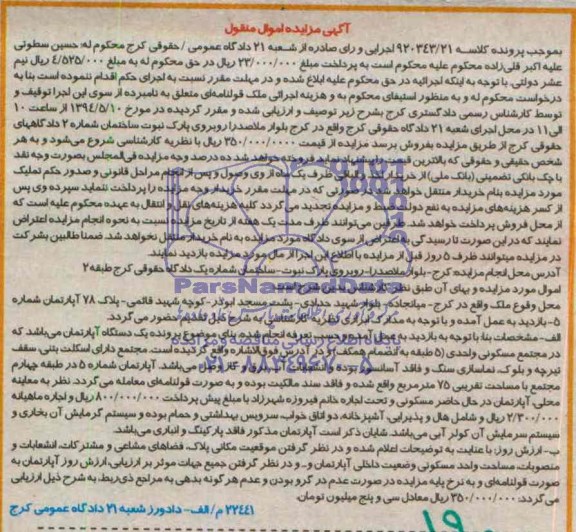 آگهی مزایده اموال منقول
بموجب پرونده کلاسه ۹۲۰۳۴۳/۲۱ اجرایی و رای صادره از شعبه ۲۱ دادگاه عمومی / حقوقی کرج محکوم له: حسین سطوتی
علیه اکبر قلی‌زاده محکوم علیه محکوم است به پرداخت مبلغ ۲۳/۰۰۰/۰۰۰ ریال در حق محکوم له به مبلغ ۴/۵۲۵/۰۰۰ ریال نیم
عشر دولتی. با توجه به اینکه اجرائیه در حق محکوم علیه ابلاغ شده و در مهلت مقرر نسبت به اجرای حکم اقدام ننموده است بنا به
درخواست محکوم له و به منظور استیفای محکوم به و هزینه اجرائی ملک قولنامه‌ای متعلق به نامبرده از سوی این اجرا توقیف و
توسط کارشناس رسمی دادگستری کرج بشرح زیر توصیف و ارزیابی شده و مقرر گردیده در مورخ ۱۳۹۴/۵/۱۰ از ساعت ۱۰
الی ۱۱ در محل اجرای شعبه ۲۱ دادگاه حقوقی کرج واقع در کرج بلوار ملاصدرا روبروی پارک نبوت ساختمان شماره ۲ دادگاههای
حقوقی کرج از طریق مزایده بفروش برسد مزایده از قیمت ۳۵۰/۰۰۰/۰۰۰ ریال با نظریه کارشناسی شروع می‌شود و به هر
شخص حقیقی و حقوقی که بالاترین قیمت را پیشنهاد نماید فروخته خواهد شد. ده درصد وجه مزایده فی‌المجلس بصورت وجه نقد
یا چک بانکی تضمینی (بانک ملی) از خریدار اخذ و الباقی ظرف یک ماه از وی وصول و پس از انجام مراحل قانونی و صدور حکم تملیک
مورد مزایده بنام خریدار منتقل خواهد شد در صورتی که در مهلت مقرر خریدار وجه مزایده را پرداخت ننماید سپرده وی پس
از کسر هزینه‌های مزایده به نفع دولت ضبط و مزایده تجدید می گردد کلیه هزینه‌های نقل و انتقال به عهده محکوم علیه است که
از محل فروش پرداخت خواهد شد. طرفین می‌توانند ظرف مدت یک هفته از تاریخ مزایده نسبت به نحوه انجام مزایده اعتراض
نمایند که در این صورت تا رسیدگی به اعتراض از سوی دادگاه مورد مزایده به نام خریدار منتقل نخواهد شد. ضمنا طالبین شرکت
در مزایده میتوانند ظرف ۵ روز قبل از مزایده با اطلاع این اجرا از مال مورد مزایده بازدید نمایند.
آدرس محل انجام مزایده: کرج- بلوار ملاصدرا- روبروی پارک نبوت- ساختمان شماره یک دادگاه حقوقی کرج طبقه ۲
اموال مورد مزایده و بهای آن طبق نظر کارشناس
محل وقوع ملک واقع در کرج - میانجاده- بلوار شهید حدادی- پشت مسجد ابوذر- کوچه شهید قائمی- پلاک ۷۸ آپارتمان شماره
۵- بازدید به عمل آمده و با توجه به مدارک ابرازی نظریه کارشناسی به شرح ذیل تقدیم حضور می گردد.
الف- مشخصات بنا: با توجه به بازدید به عمل آمده و تعرفه انجام شده بنای موضوع پرونده یک دستگاه آپارتمان می‌باشد که
در مجتمع مسکونی واحدی (۵ طبقه به انضمام همکف) و در آدرس فوق الاشاره واقع گردیده است. مجتمع دارای اسکلت بتنی، سقف
تیرچه و بلوک، نماسازی سنگ و فاقد آسانسور بوده و می‌باشد. آپارتمان شماره ۵ در طبقه چهارم
مجتمع با مساحت تقریبی ۷۵ مترمربع واقع شده و فاقد سند مالکیت بوده و به صورت قولنامه‌ای معامله می گردد. نظر به معاینه
محلی، آپارتمان در حال حاضر مسکونی و تحت اجاره خانم فیروزه شهرزاد با مبلغ پیش پرداخت ۸۰۰/۰۰۰/۰۰۰ ریال و اجاره ماهیانه
۲/۳۰۰/۰۰۰ ریال و شامل هال و پذیرایی، آشپزخانه، دو اتاق خواب، سرویس بهداشتی و حمام بوده و سیستم گرمایش آن بخاری و
سیستم سرمایش آن کولر آبی می‌باشد. شایان ذکر است آپارتمان مذکور فاقد پارکینگ و انباری می‌باشد.
ب- ارزش روز: با عنایت به توضیحات اعلام شده و در نظر گرفتن موقعیت مکانی پلاک، فضاهای مشاعی و مشترکات، انشعابات و
منصوبات، مساحت واحد مسکونی وضعیت داخلی آپارتمان و... و در نظر گرفتن جمیع جهات موثر بر ارزیابی، ارزش روز آپارتمان به
صورت قولنامه‌ای و به نرخ پایه مزایده در صورت عدم در گرو بودن و عدم هر گونه بدهی به مراجع ذی‌ربط، به شرح ذیل ارزیابی
می گردد: ۳۵۰/۰۰۰/۰۰۰ ریال معادل سی و پنج میلیون تومان.
۲۲۴۴۱/م الف- دادورز شعبه ۲۱ دادگاه عمومی کرج
ParsNamadData
پایگاه اطلاع رسانی مناقصه و مزایده
۱۹